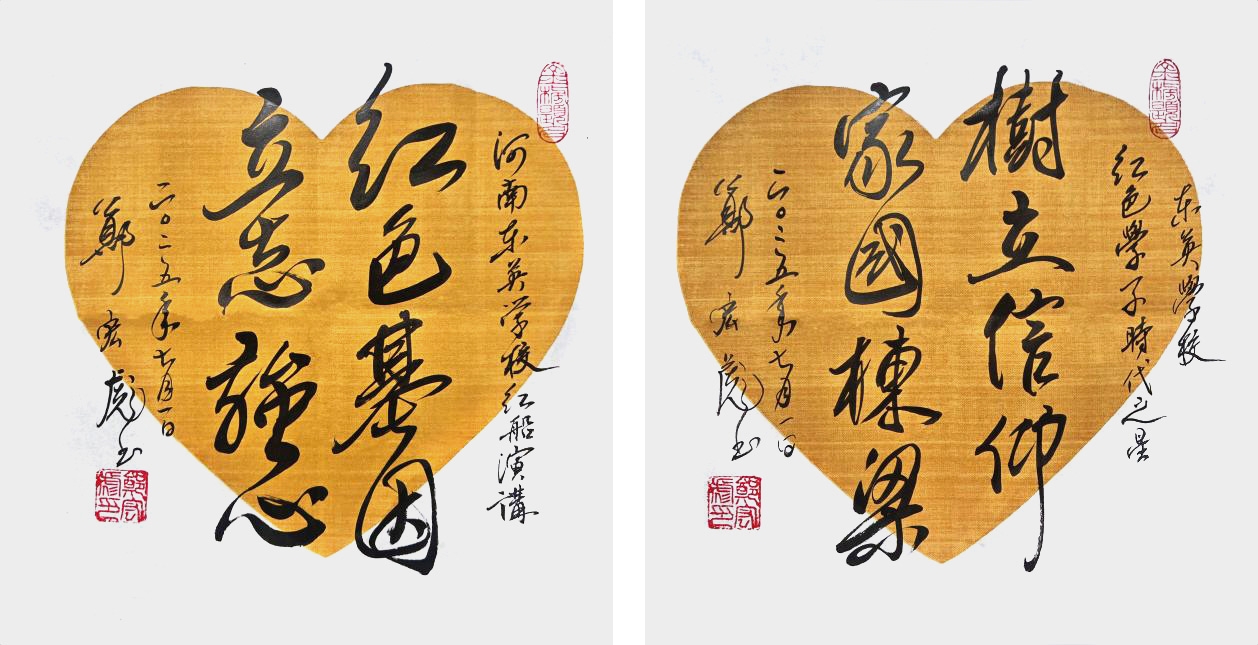 河南东英学校红船演講
红色基因
立志強心
二〇二五年七月一日
鄭宏彪书
东英學校
红色學子時代之星
樹立信仰
家國棟梁
二〇二五年七月一日
鄭宏彪书